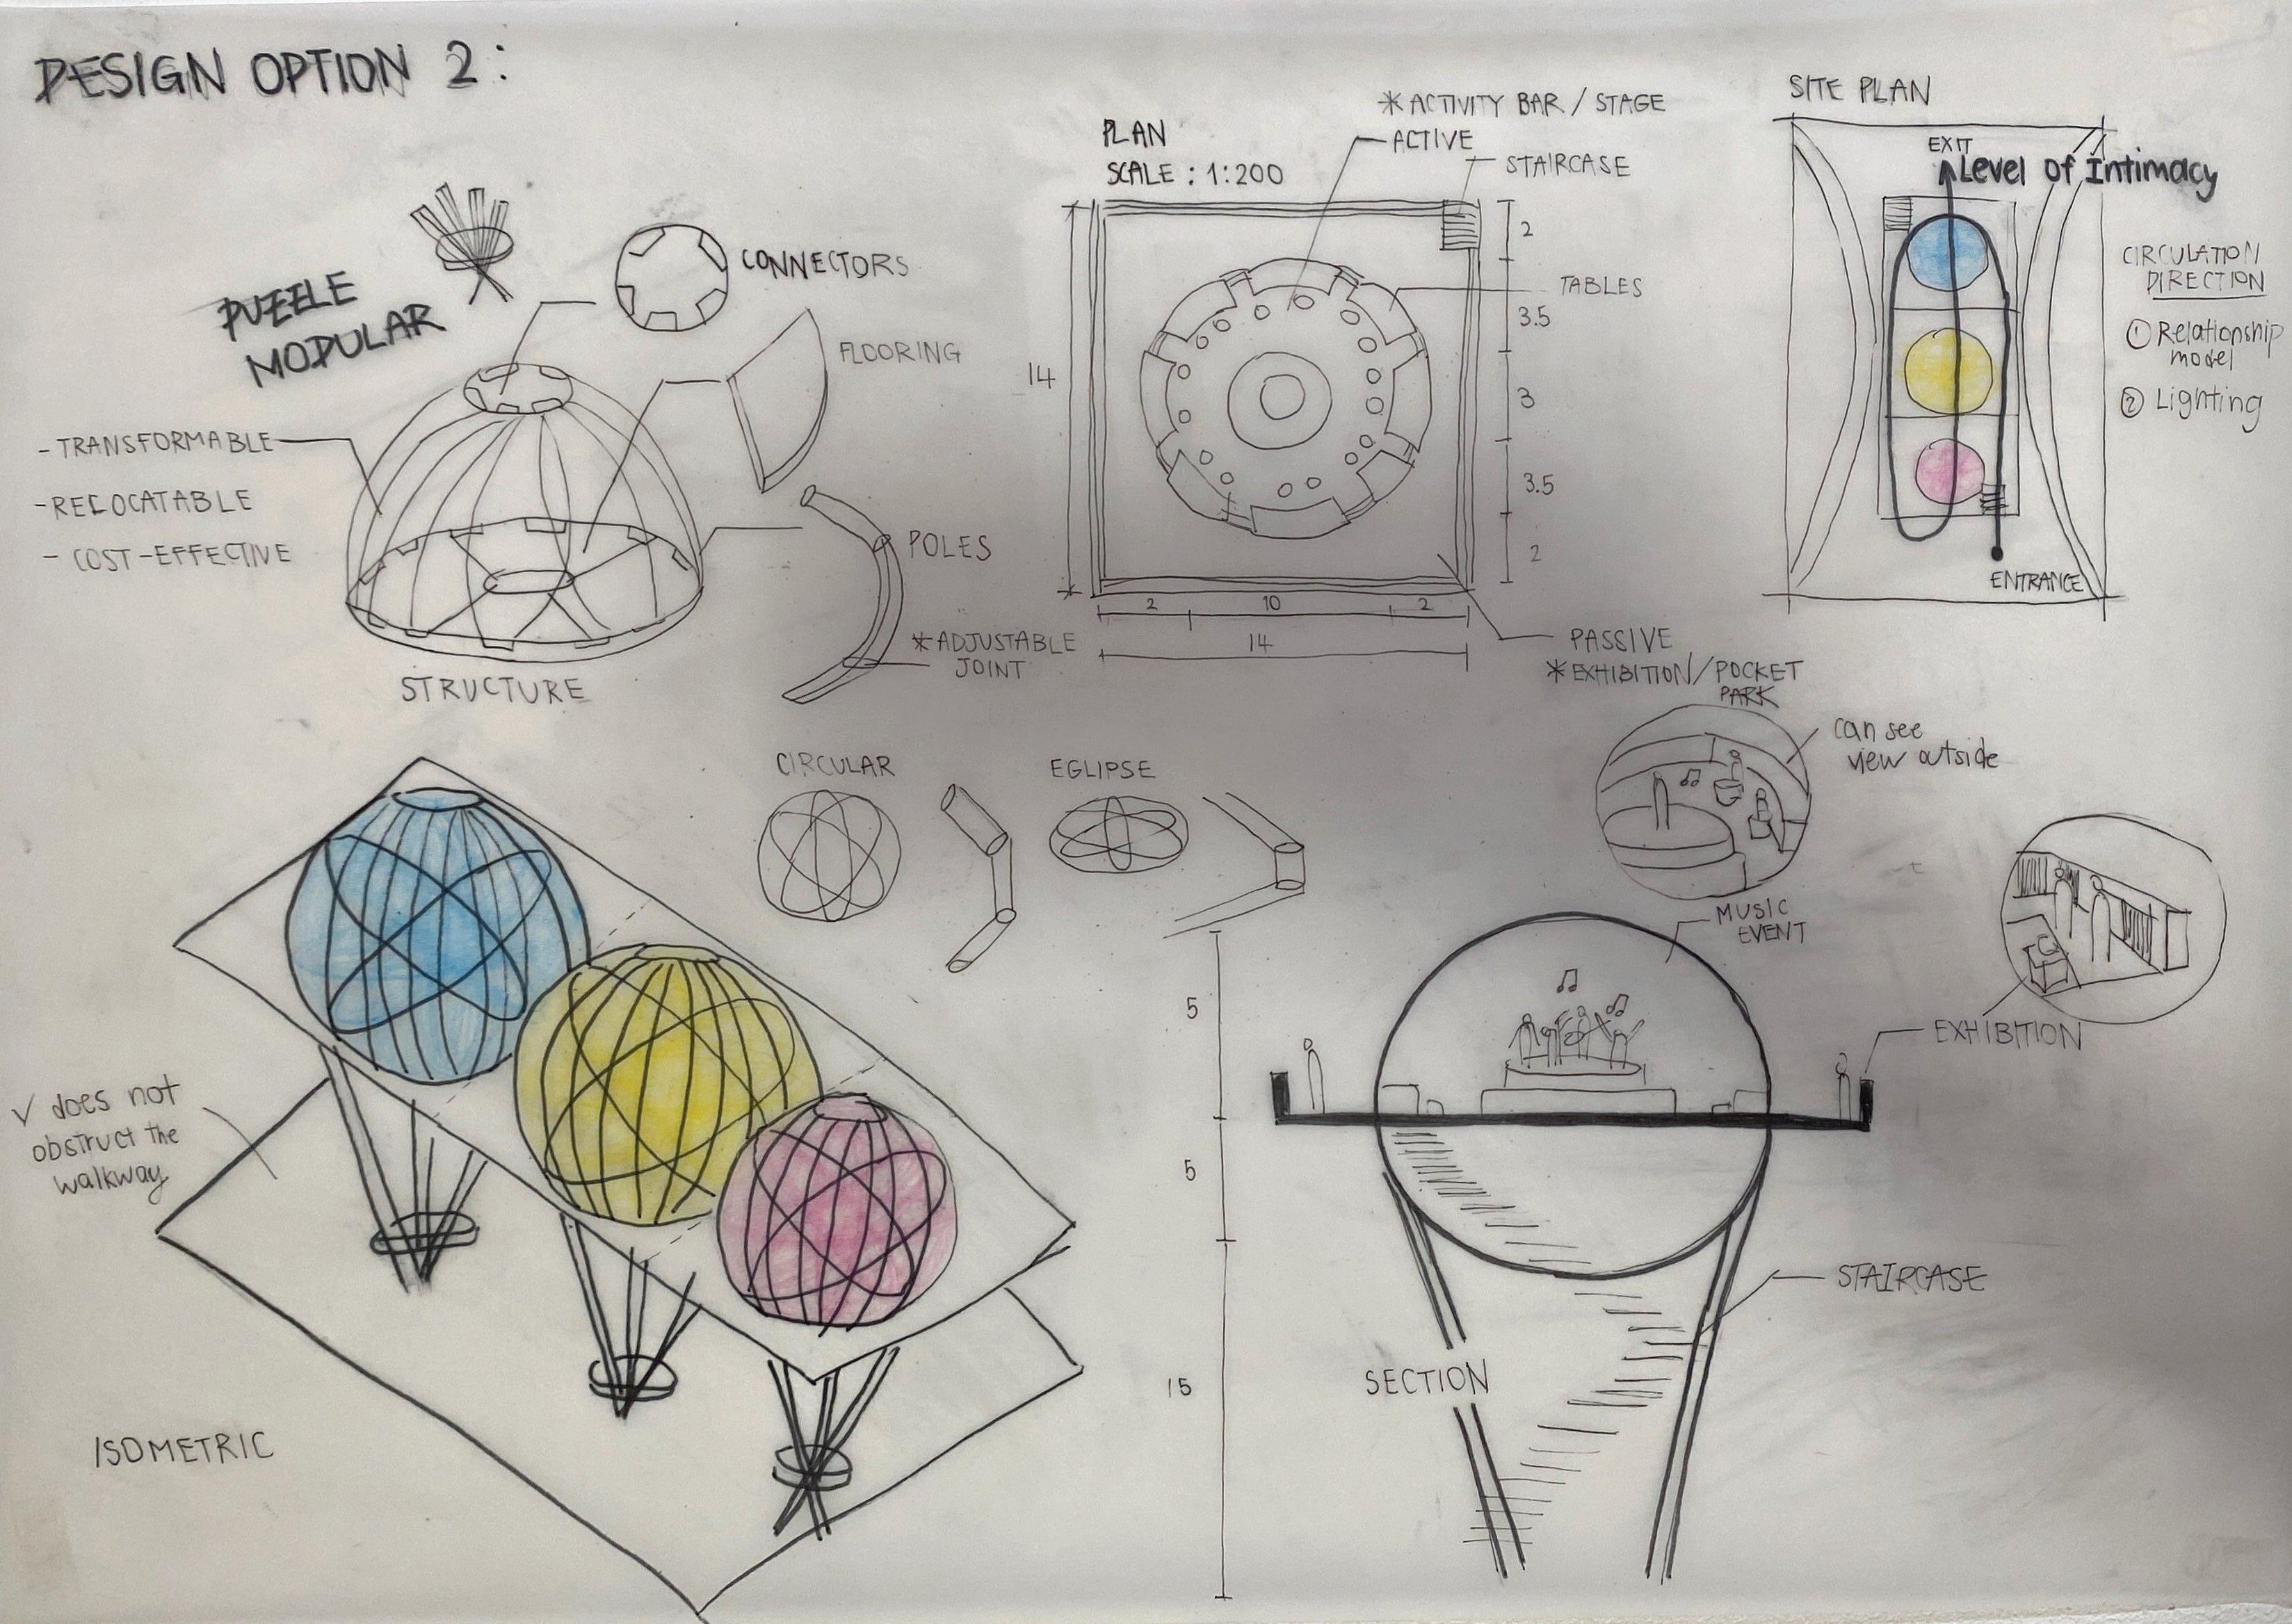 DESIGN OPTION 2:
PUZZLE
MODULAR
CONNECTORS
FLOORING
- TRANSFORMABLE
- RELOCATABLE
- COST-EFFECTIVE
POLES
* ADJUSTABLE
JOINT
STRUCTURE
PLAN
SCALE : 1:200
* ACTIVITY BAR / STAGE
ACTIVE
STAIRCASE
TABLES
14
2
3.5
3
3.5
2
2
10
2
14
PASSIVE
* EXHIBITION/POCKET
PARK
SITE PLAN
EXIT
Level of Intimacy
CIRCULATION
DIRECTION
① Relationship
model
② Lighting
ENTRANCE
CIRCULAR
EGLIPSE
can see
view outside
MUSIC
EVENT
EXHIBITION
5
5
15
STAIRCASE
SECTION
✓ does not
obstruct the
walkway
ISOMETRIC